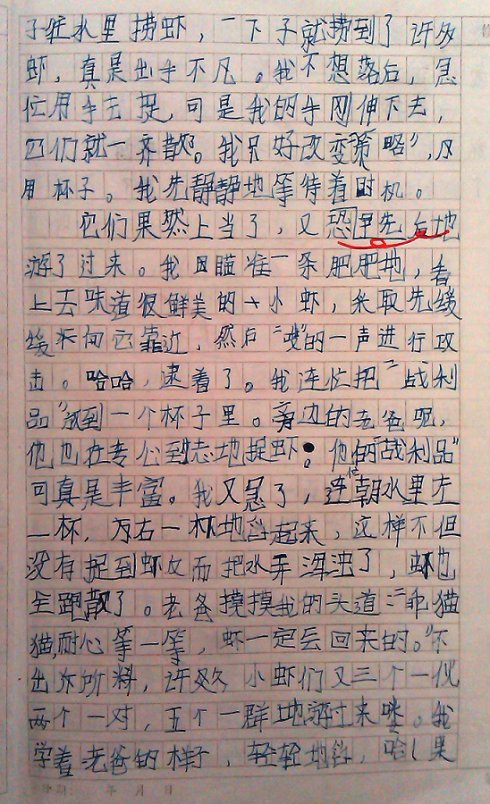 子往水里捞虾，一下子就捞到了许多
虾，真是出手不凡。我不想落后，急
忙用手去捉，可是我的手刚伸下去，
它们就一齐散。我只好改变"策略"，改
用杯子。我先静静地等待着时机。
它们果然上当了，又恐争先后地
游了过来。我瞄准一条肥肥地，看
上去味道很鲜美的小虾，采取先缓
缓向它靠近，然后"嗖"的一声进行攻
击。哈哈，逮着了。我连忙把"战利
品"放到一个杯子里。旁边的老爸呢，
他也在专心到志地捉虾。他的"战利品"
可真是丰富。我又急了，连忙朝水里左
一杯，右一杯地舀起来，这样不但
没有捉到虾反而把水弄浑浊了，虾也
全跑散了。老爸摸摸我的头道："乖猫
猫，耐心等一等，虾一定会回来的。"不
出所料，许久，小虾们又三个一伙
两个一对，五个一群地游过来喽。我
学着老爸的样子，轻轻地舀，哈！果